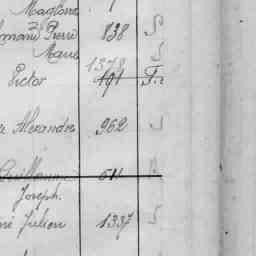 Magloire
Pierre 838 S
Marie S
1378
Victor 191 F.
Alexandre 962 S
Guillaume 611
Joseph.
Julien 1337 S